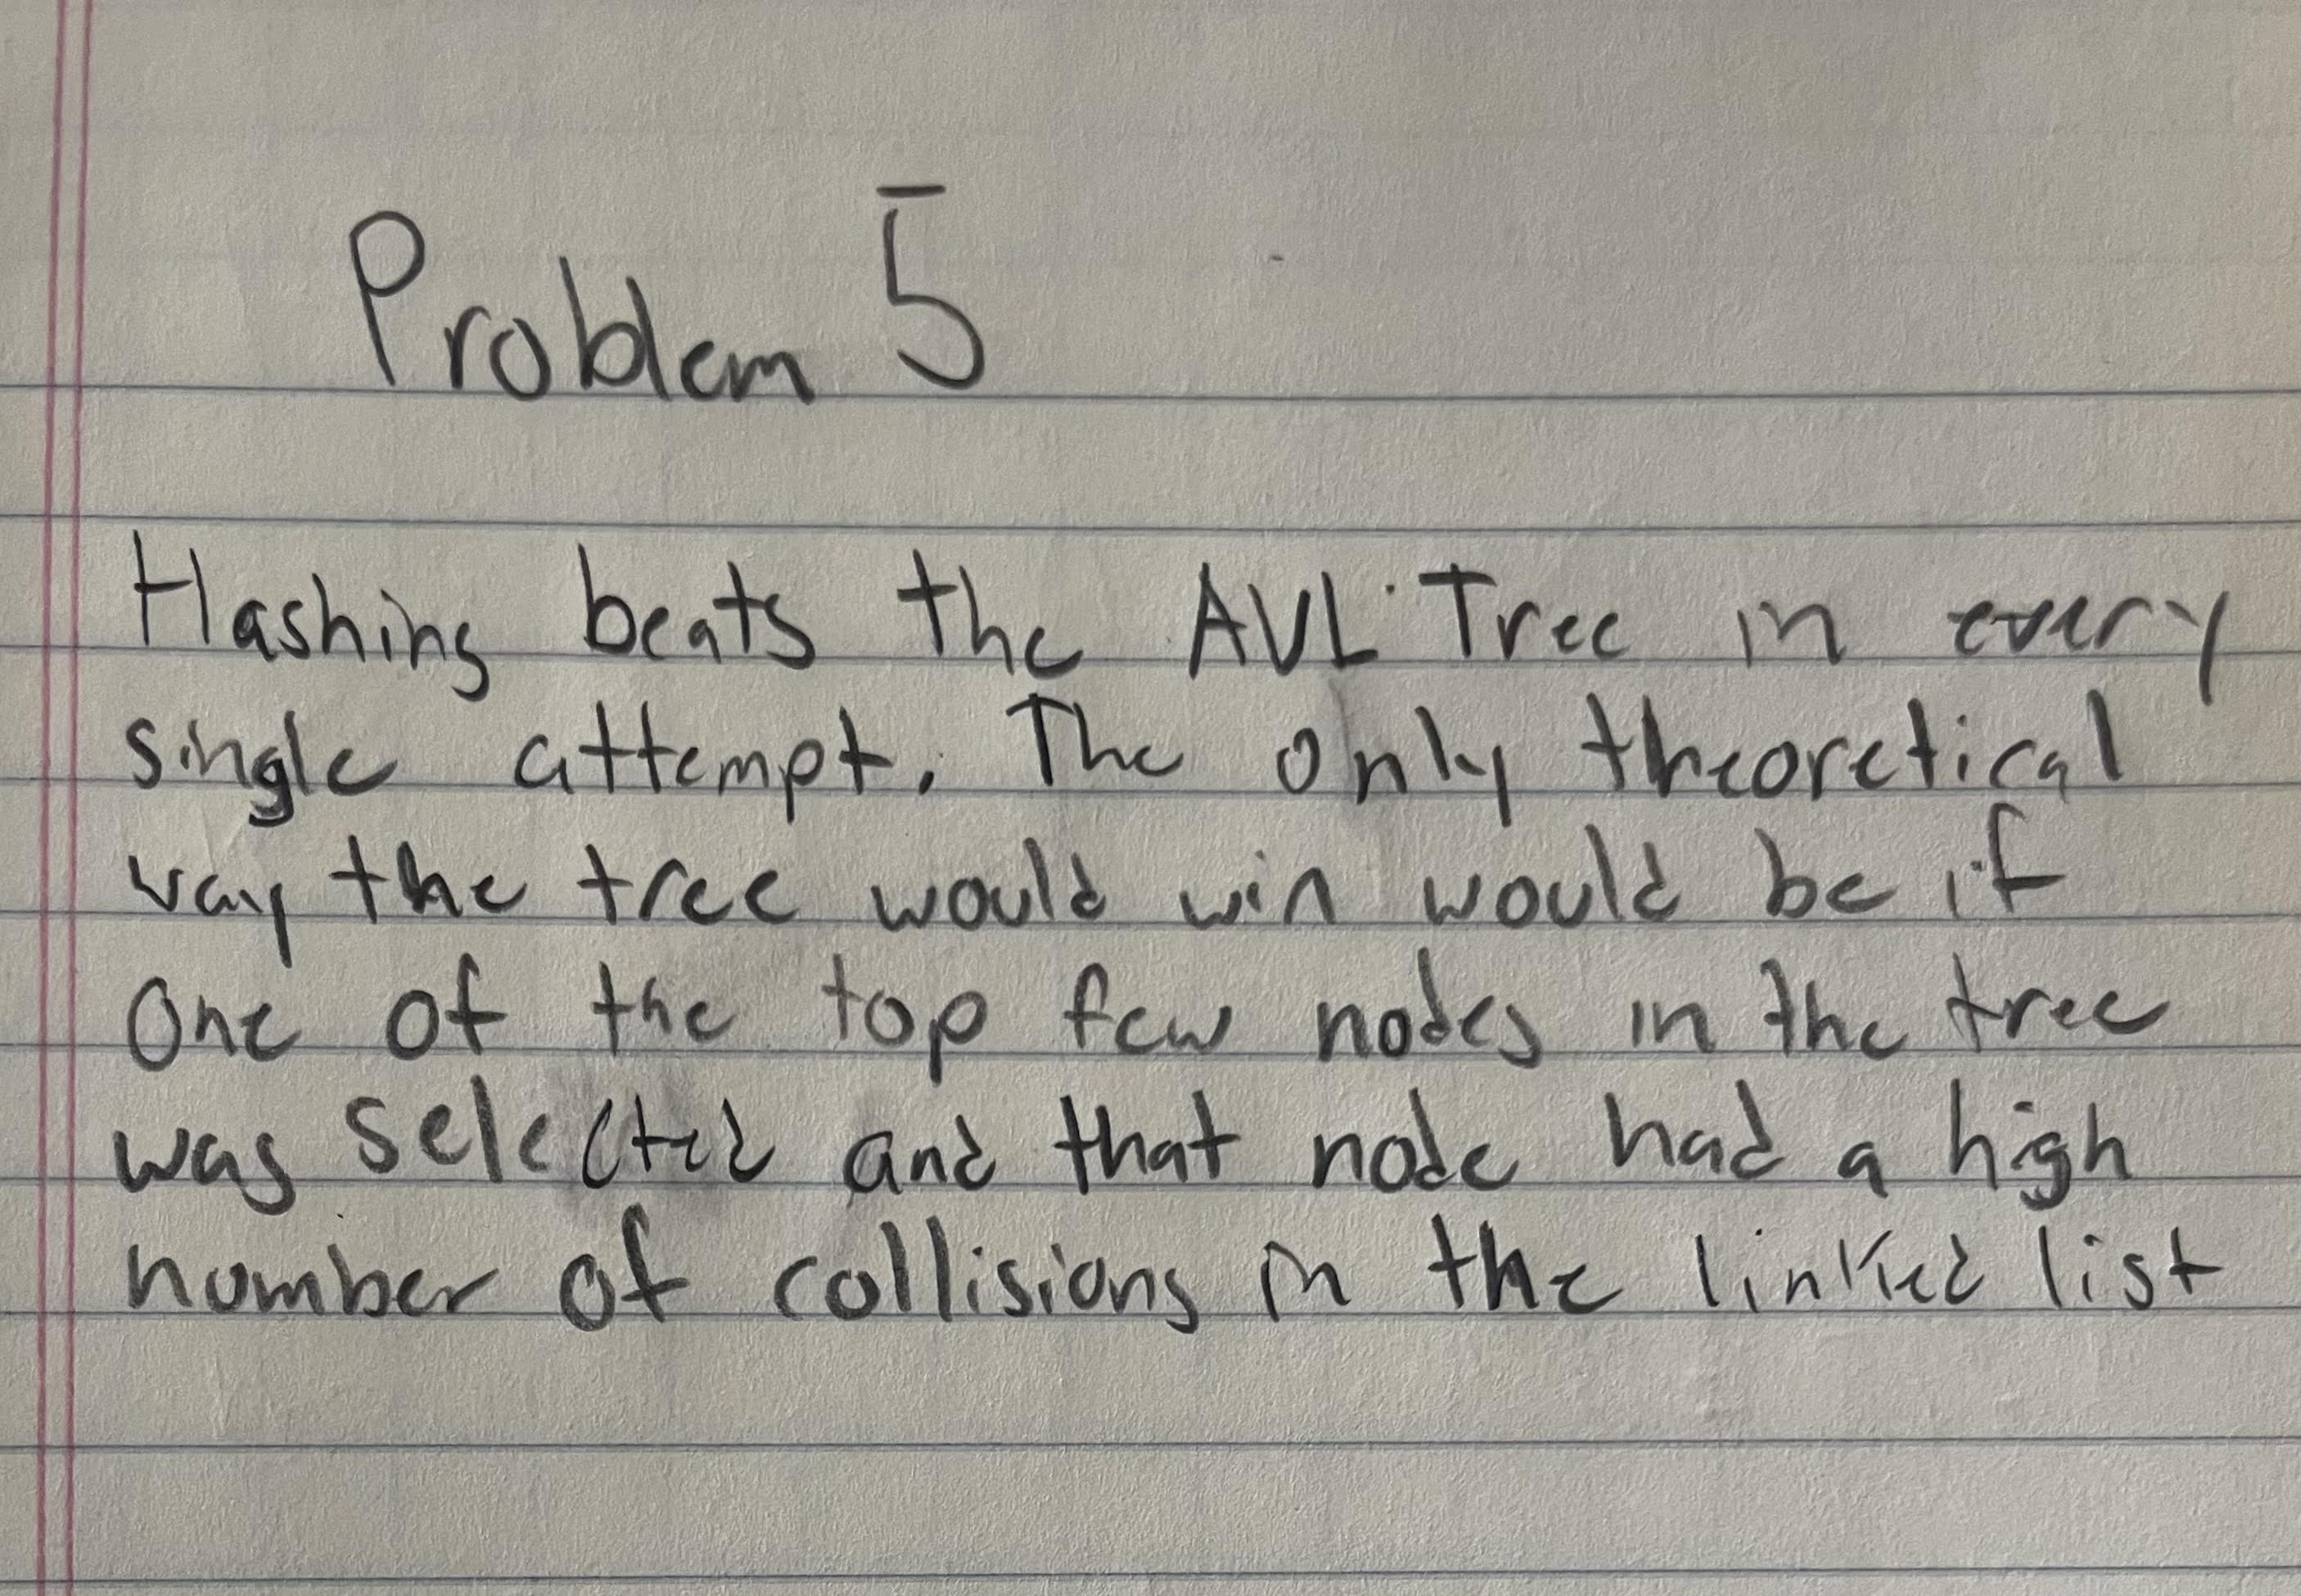 Problem 5
Hashing beats the AVL Tree in every
single attempt. The only theoretical
way the tree would win would be if
one of the top few nodes in the tree
was selected and that node had a high
number of collisions in the linked list